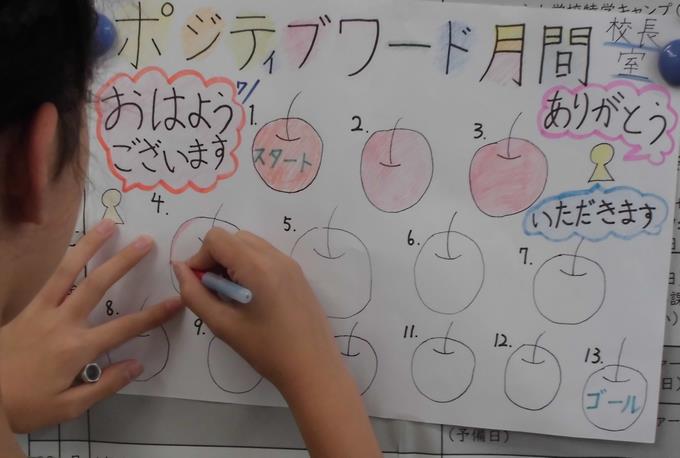 ポジティブワード月間
校長
室
おはよう
ございます
7/1
ありがとう
いただきます
1.
スタート
2.
3.
4.
5.
6.
7.
8.
9.
11.
12.
13.
ゴール
(予備日)